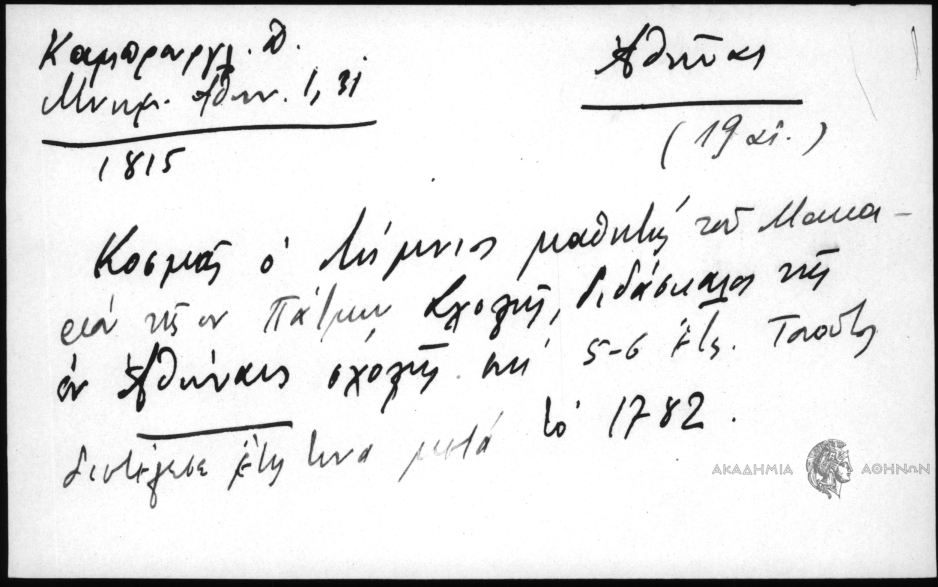 Καμπρουργλ. Δ.
Μνημ. Αθην. 1, 31
1815
Ἀθῆναι
(19 αἰ.)
Κοσμᾶς ὁ Λήμνιος μαθητὴς τοῦ Μακα-
ρίου τῆς ἐν Πάτμῳ Σχολῆς, διδάσκαλος τῆς
ἐν Ἀθήναις σχολῆς ἐπὶ 5-6 ἔτη. Τοιοῦτος
διετέλεσε ἔτη τινα μετά το 1782.
ΑΚΑΔΗΜΙΑ ΑΘΗΝΩΝ